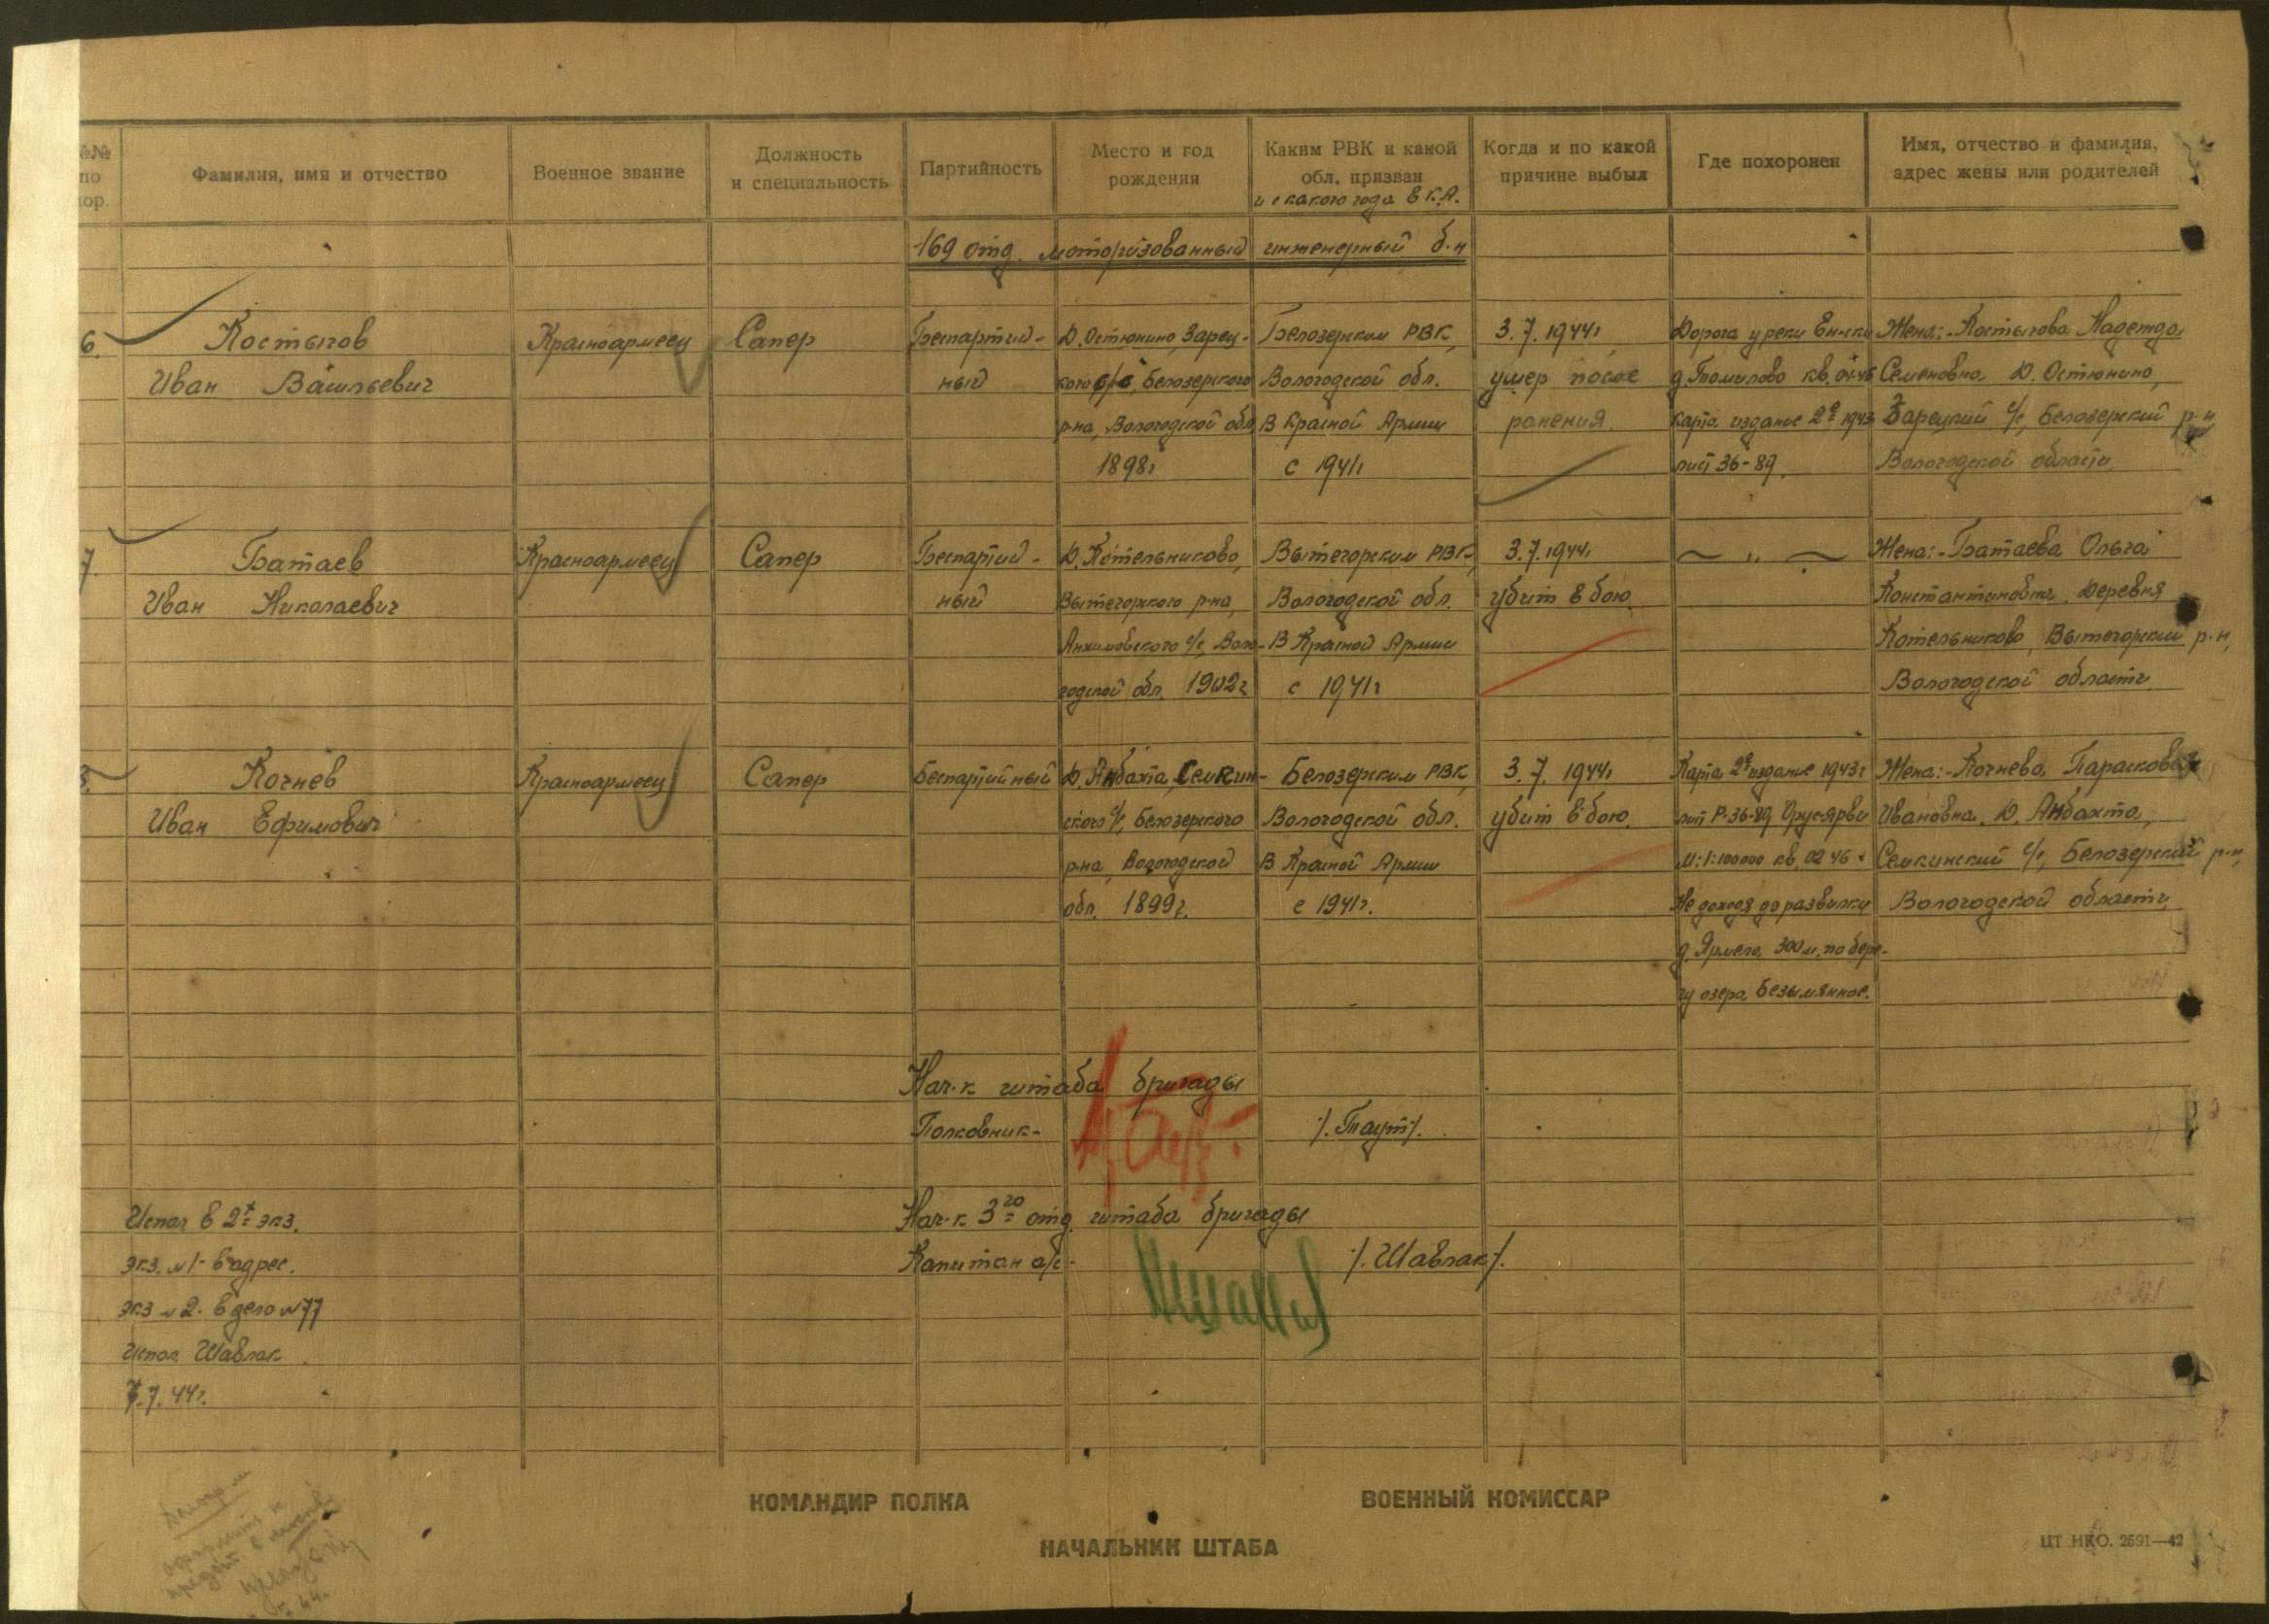 №№ по пор.
Фамилия, имя и отчество
Военное звание
Должность и специальность
Партийность
Место и год рождения
Каким РВК и какой обл. призван
и с какого года в К.А.
Когда и по какой причине выбыл
Где похоронен
Имя, отчество и фамилия, адрес жены или родителей
169 отд. моторизованный инженерный б-н
6.
Костыгов
Иван Васильевич
Красноармеец
Сапер
Беспартий-
ный
Д. Остюнино, Зарец-
кого с/с, Белозерского
р-на, Вологодской обл
1898г
Белозерским РВК,
Вологодской обл.
В Красной Армии
с 1941г
3.7.1944г
умер после
ранения.
Дорога у реки
д. Томилово кв. 04-46
карта издание 2е 1943
лист 36-89.
Жена:-Костыгова Надежда
Семеновна, Д. Остюнино,
Зарецкий с/с, Белозерский р-н,
Вологодской области.
7.
Батаев
Иван Николаевич
Красноармеец
Сапер
Беспартий-
ный
Д. Котельниково,
Вытегорского р-на,
Анхимовского с/с, Воло-
годской обл. 1902г
Вытегорским РВК,
Вологодской обл.
В Красной Армии
с 1941г
3.7.1944г
убит в бою.
— " —
Жена:-Батаева Ольга
Константиновна, Деревня
Котельниково, Вытегорский р-н,
Вологодской области.
8.
Кочнев
Иван Ефимович
Красноармеец
Сапер
Беспартийный
Д. Анбахта, Семкин-
ского с/с, Белозерского
р-на, Вологодской
обл. 1899г.
Белозерским РВК,
Вологодской обл.
В Красной Армии
с 1941г.
3.7.1944г
убит в бою.
Карта 2е издание 1943г
лист Р-36-89 Орусярви
М:1:100000 кв. 02 46
Не доходя до развилки
д. 300 м. по бере-
гу озера Безымянное.
Жена:-Кочнева Парасковья
Ивановна, Д. Анбахта,
Семкинский с/с, Белозерский р-н,
Вологодской области.
Нач-к штаба бригады
Полковник- /.Таут/.
Нач-к 3го отд. штаба бригады
Капитан а/с- /.Шавлак/.
Испол в 2х экз.
экз. №1- в адрес.
экз №2- в дело №77
Испол. Шавлак.
7.7.44г.
КОМАНДИР ПОЛКА
ВОЕННЫЙ КОМИССАР
НАЧАЛЬНИК ШТАБА
ЦТ НКО. 2591—42